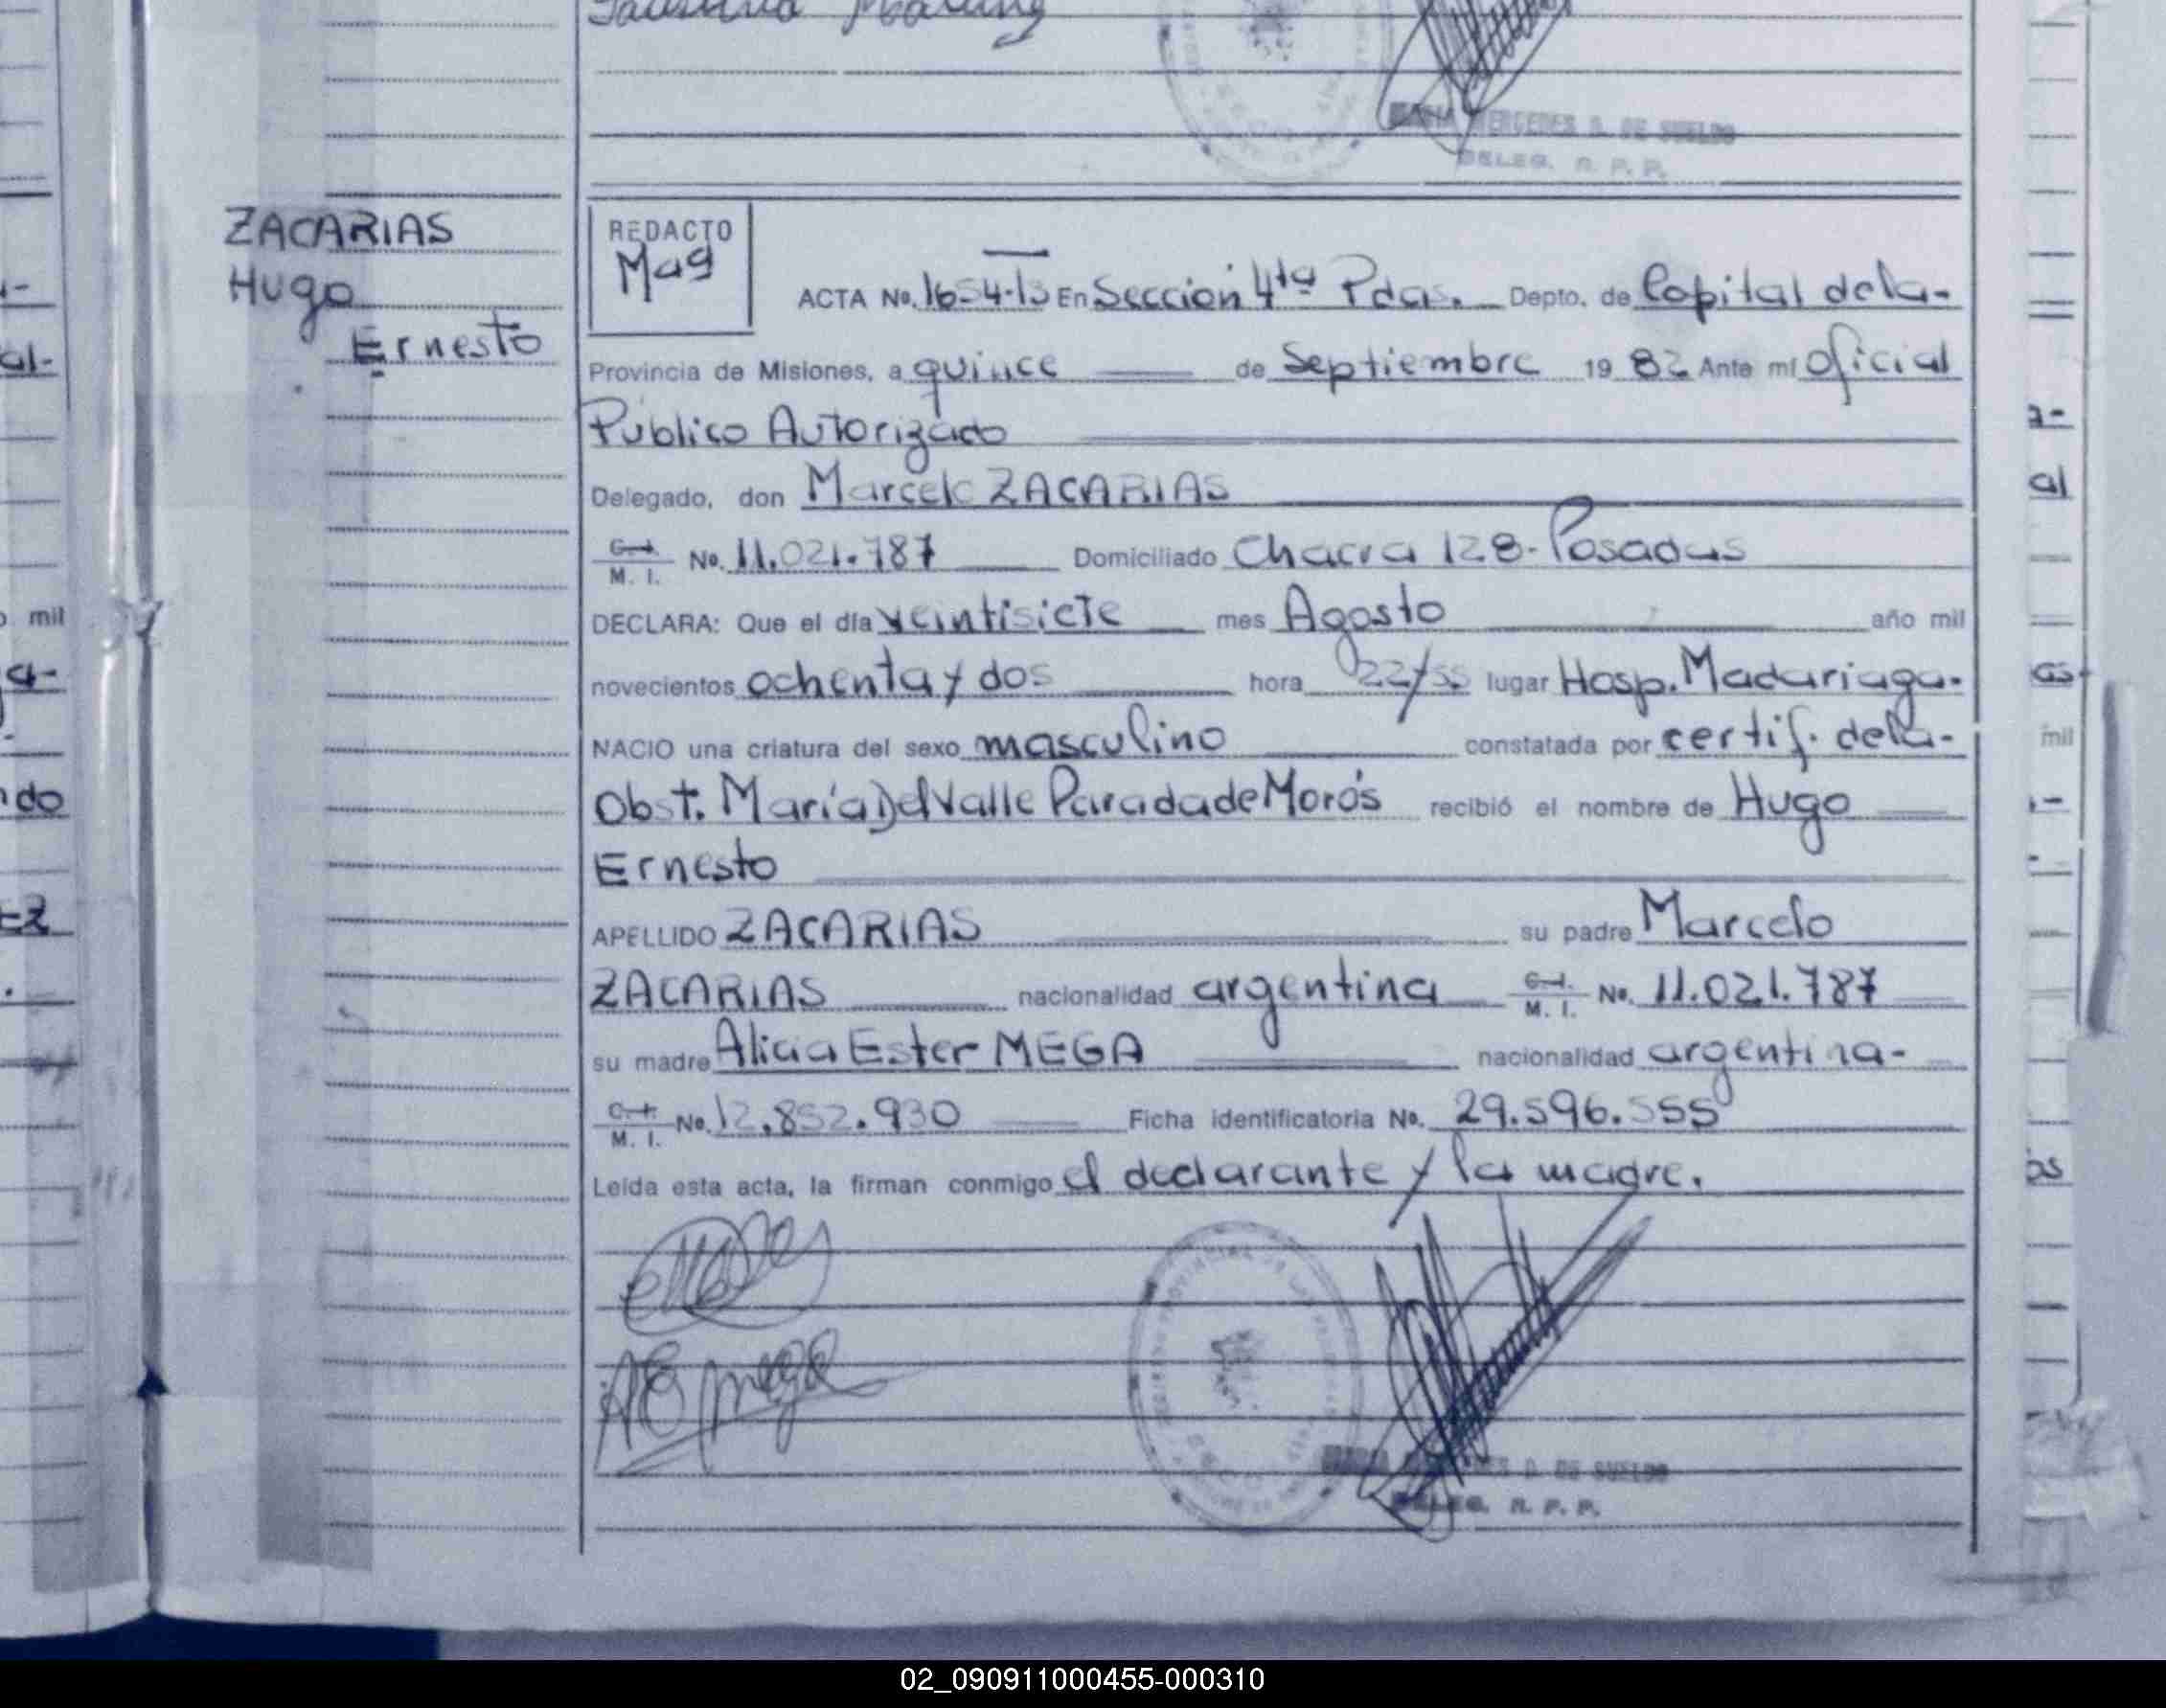 ZACARIAS
Hugo
Ernesto
MERCEDES A. DE SUELDO
DELEG. R. P. P.
REDACTO
Mag
ACTA No. 1654-13 En Sección 4ta Pdas. Depto. de Capital de la-
Provincia de Misiones, a quince de Septiembre 1982 Ante mí Oficial
Público Autorizado
Delegado, don Marcelo ZACARIAS
C. I. M. I. No. 11.021.787 Domiciliado Chacra 128- Posadas
DECLARA: Que el día veintisiete mes Agosto año mil
novecientos ochenta y dos hora 22/55 lugar Hosp. Madariaga.
NACIO una criatura del sexo masculino constatada por certif. de la-
Obst. María Del Valle Parada de Morós recibió el nombre de Hugo
Ernesto
APELLIDO ZACARIAS su padre Marcelo
ZACARIAS nacionalidad argentina C. I. M. I. No. 11.021.787
su madre Alicia Ester MEGA nacionalidad argentina-
C. I. M. I. No. 12.852.930 Ficha identificatoria No. 29.596.555
Leída esta acta, la firman conmigo el declarante y la madre.
AE Mega
DE SUELDO
DELEG. R. P. P.
mil
do
mil
02_090911000455-000310